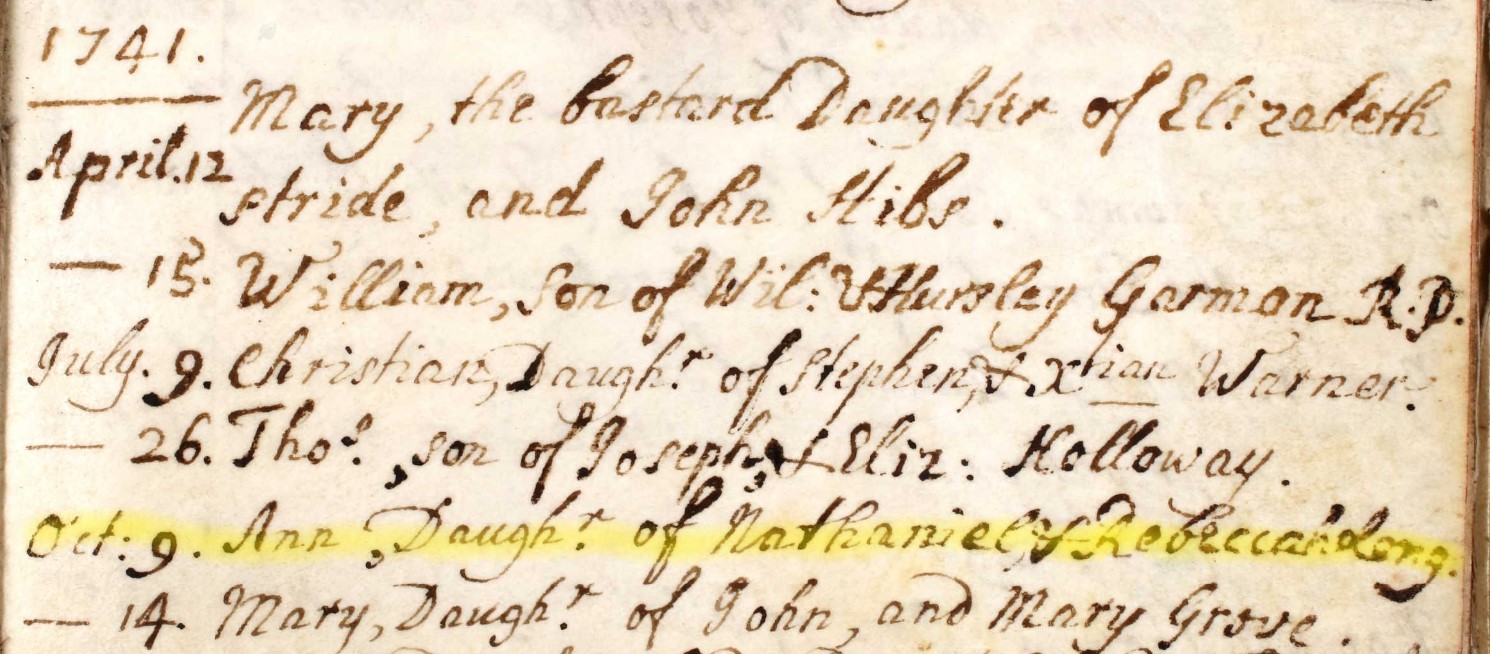 1741.
Mary, the bastard Daughter of Elizabeth
April.12
stride, and John Stibs.
— 15. William, Son of Wil: & Hursley Garman R.P.
July. 9. Christian, Daugh.r of Stephen, & Xtian Warner.
— 26. Tho.s, son of Joseph, & Eliz: Holloway.
Oct: 9. Ann, Daugh.r of Nathaniel, & Rebeccah Long.
— 14. Mary, Daugh.r of John, and Mary Grove.